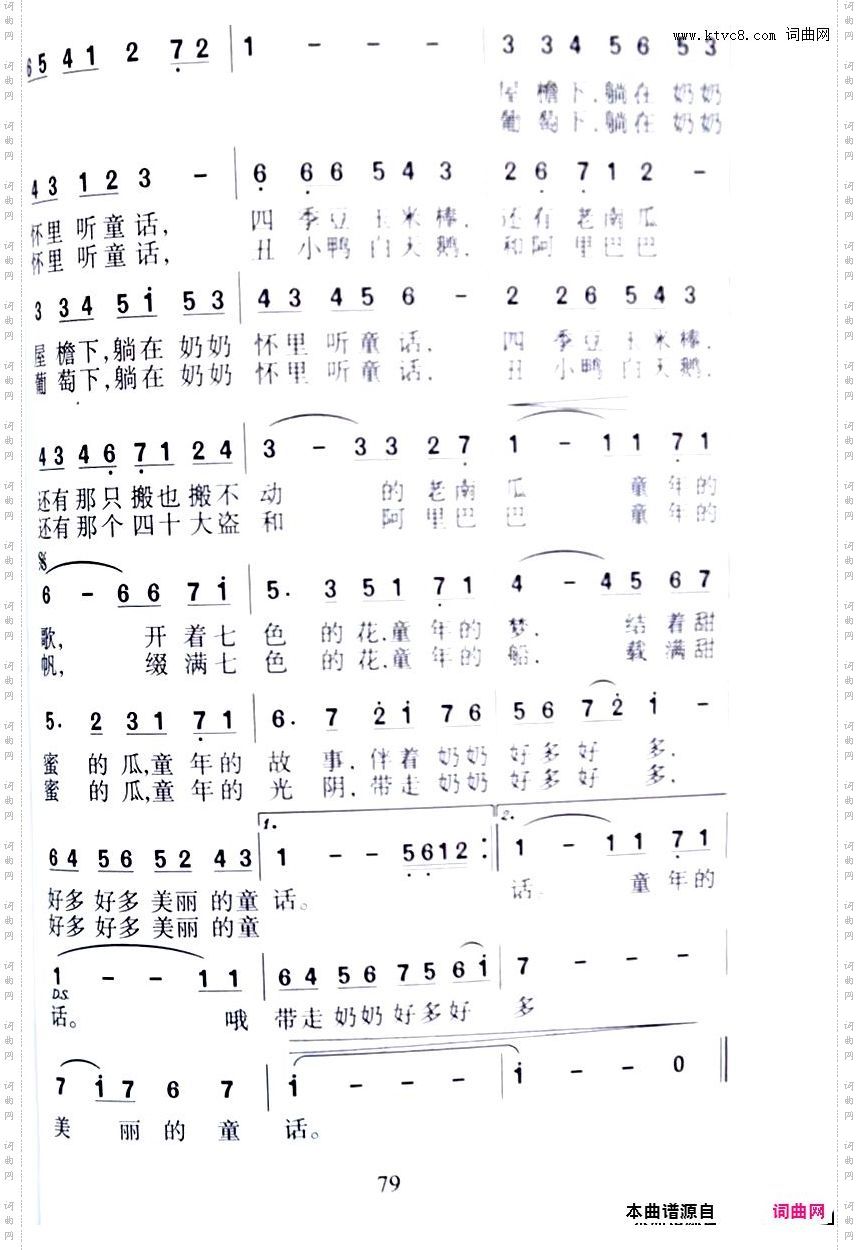 www.ktvc8.com 词曲网
6 5 4 1 2 7 2 | 1 - - - | 3 3 4 5 6 5 3
屋檐下,躺在奶奶
葡萄下,躺在奶奶
4 3 1 2 3 - | 6 6 6 5 4 3 | 2 6 7 1 2 -
怀里听童话, 四季豆玉米棒,还有老南瓜
怀里听童话, 丑小鸭白天鹅,和阿里巴巴
3 3 4 5 i 5 3 | 4 3 4 5 6 - | 2 2 6 5 4 3
屋檐下,躺在奶奶怀里听童话, 四季豆玉米棒,
葡萄下,躺在奶奶怀里听童话, 丑小鸭白天鹅,
4 3 4 6 7 1 2 4 | 3 - 3 3 2 7 | 1 - 1 1 7 1
还有那只搬也搬不动 的老南瓜 童年的
还有那个四十大盗和 阿里巴巴 童年的
6 - 6 6 7 i | 5. 3 5 1 7 1 | 4 - 4 5 6 7
歌, 开着七色的花,童年的梦, 结着甜
帆, 缀满七色的花,童年的船, 载满甜
5. 2 3 1 7 1 | 6. 7 2 i 7 6 | 5 6 7 2 i -
蜜的瓜,童年的故事,伴着奶奶好多好多,
蜜的瓜,童年的光阴,带走奶奶好多好多,
1. 2.
6 4 5 6 5 2 4 3 | 1 - - 5 6 1 2 :| 1 - 1 1 7 1
好多好多美丽的童话。 话。 童年的
好多好多美丽的童
1 - - 1 1 | 6 4 5 6 7 5 6 i | 7 - - -
D.S.
话。 哦 带走奶奶好多好 多
7 i 7 6 7 | i - - - | i - - 0 ‖
美丽的童话。
79
本曲谱源自 词曲网